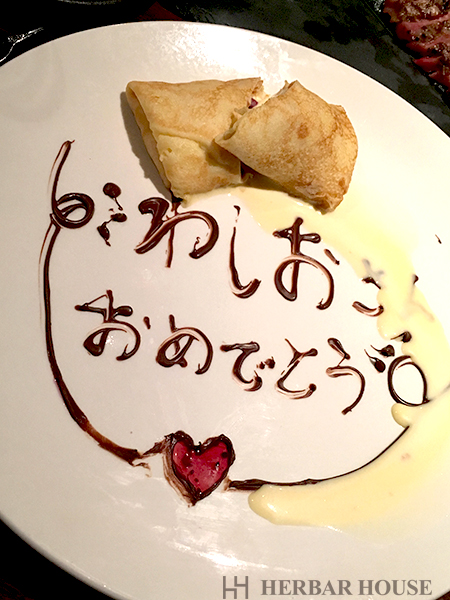 わしお
おめでとう
HERBAR HOUSE